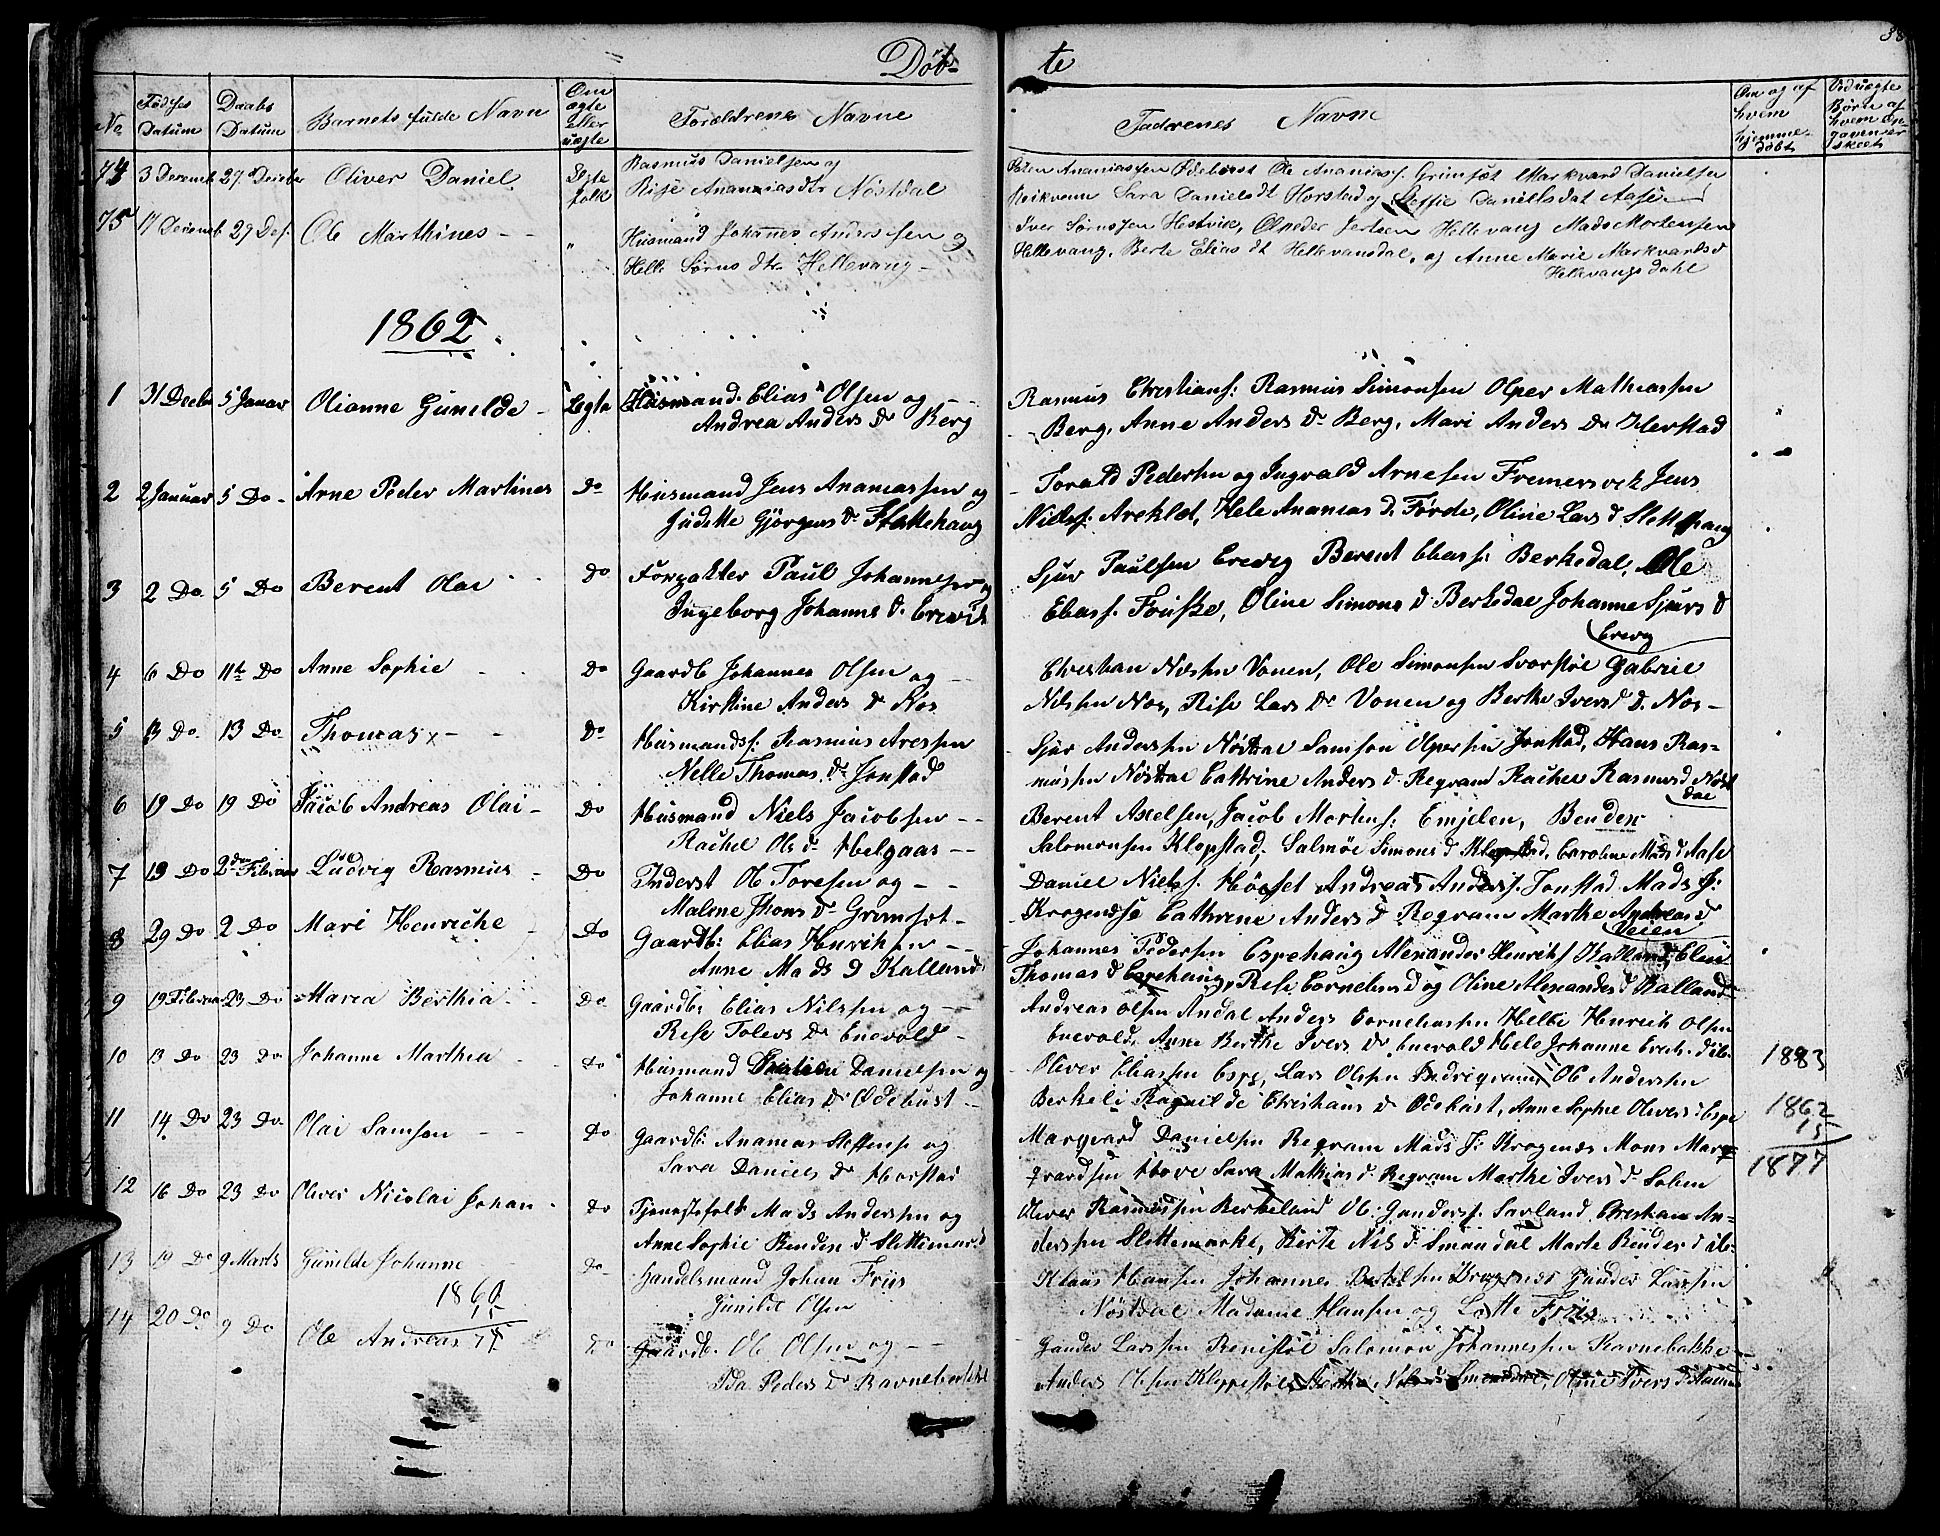 Døb- te
38
No
Fødsels Datum
Daabs Datum
Barnets fulde Navn
Om ægte eller uægte
Forældrenes Navne
Faddrenes Navne
Om og af hvem hjemme- døbt
Ved uægte Børn af hvem Op- gaven er skeet
74 3 Decemb 27. Decbr Oliver Daniel Ægte folk Rasmus Danielsen og
Risje Ananiasdtr Nøstdal
Peten Ananiassen Ødebøst Ole Ananiasf. Grimsæt Markvard Danielsen
Sara Danielsdt Horstad og Steffie Danielsdat Aase
75 17 Decemb 29 Des. Ole Marthines - - " Husmand Johannes Anderssen og
Helle Sørns dtr Hellevang -
Iver Sørnssen Hestvik, Olpeder Jertsen Hellevang Mads Mortensen
Hellevang, Berte Elias dt Hellevansdal, og Anne Marie Markvards d
Hellevangsdahl
1862.
1 31 Decbr 5 Januar Olianne Gunilde - Ægte Husmand. Elias Olsen og - -
Andrea Anders Dr Berg
Rasmus Christiansf: Rasmus Simonsen Olper Mathiassen
Berg, Anne Anders Dr Berg, Mari Anders Dr Herstad
2 2 Januar 5 Do - Arne Peder Martines Do Husmand Jens Ananiassen og
Judette Gjørgens Dr Slattehaug
Torald Pedersen og Ingvald Arnesen Fremersvik Jens
Nielsf. Areklet, Hele Ananias d. Førde, Oline Lars d Slettehaug
3 2 Do 5 Do Berent Olai Do Forpakter Paul Johannesen og
Ingeborg Johanns d. Erevik
Sjur Paulsen Erevig Berent Eliasf: Berkedal, Ole
Eliasf. Fruske, Oline Simons d Berkedal Johanne Sjurs d
Erevig
4 6 Do 11te Do Anne Sophie Do Gaardb Johannes Olsen og -
Kirstine Anders Dr Nos
Christian Nilssen Vonen, Ole Simonsen Svorstøl Gabriel
Nilssen Nos, Rise Lars Dr Vonen og Berthe Ivers d. Nos -
5 13 Do 13 Do Thomas - - Do Husmandsf. Rasmus Aressen
Nelle Thomas Dr Jonstad
Sjur Anderssen Nøstdal Samson Olpersen Jonstad, Hans Ras-
mussen Nøstdal Cattrine Anders d. Regram Rachel Rasmus d Nøst
dal
6 19 Do 19 Do Jacob Andreas Olai - Do Husmand Niels Jacobsen - -
Rachel Ols d. Helgaas - -
Berent Axelsen, Jacob Mortensf. Emjelen, Bendix
Salomonsen Klopstad, Salmøe Simons d Klopstad, Caroline Mads d Aase
7 19 Do 2den Februar Ludvig Rasmus - Do Inderst Ole Toresen og - -
Malene Jhons Dr Grimset -
Daniel Nielsf. Høeset Andreas Andersf. Jonstad Mads J:
Krogenæse Cathrine Anders d Regram Marthe Andreas d
Veien
8 29 Do 2 Do Mari Henriche Do Gaardb: Elias Henriksen - -
Anne Mads D Kalland
Johannes Pedersen Espehaug Alexander Henriks Kalland Elen
Thomas d Espehaug, Rise Cornelius d og Oline Alexanders d Kalland
9 19 Februar 23 Do Maria Berthia - Do Gaardb: Elias Nilssen og - -
Rise Tolevs Dr Enevold -
Andreas Olsen Andal Anders Corneliussen Helle Henrich Olsen
Enevold, Anne Berthe Ivers Dr Enevold Hele Johanne Erichs d ib.
10 13 Do 23 Do Johanne Marthea - Do Husmand Danielsen og
Johanne Elias Dr Ødebust -
Oliver Eliassen Espe, Lars Olsen Indregram Ole Anderssen
Berkeli Ragnilde Christians d Ødebust, Anne Sophie Olivers d Espe
1883
11 14 Do 23 Do Olai Samson - - Do Gaardb: Ananias Steffensen og
Sara Daniels Dr Horstad
Marqvard Danielsen Regram Mads J: Krogenæs Mons Mar-
qvardsen Hove Sara Mathias d. Regram Marthe Ivers d. Solem
1862
15
1877
12 16 Do 23 Do Oliver Nicolai Johan - Do Tjenestefolk Mads Anderssen og
Anne Sophie Benden d Slettemark
Oliver Rasmussen Berkeland Ole Gundersf. Sørland Christian An-
derssen Slettemarke, Berte Nils d. Smaadal Marte Bender d ib.
13 19 Do 9 Marts Gunilde Johanne - Do Handelsmand Johan Friis
Gunilde Olsen
Klaus Hansen Johannes Bertelsen Krogenæs Gunder Larssen
Nøstdal Madame Hansen og Lotte Friis
1860
15
75
14 20 Do 9 Do Ole Andreas Do Gaardb. Ole Olsen og - -
Ida Peders Dr Ravnebakke
Gunder Larssen Renestøl Salomon Johannessen Ravnebakke
Anders Olsen Kleppestøl, Berthe Nils d. Smaadal, Oline Ivers d